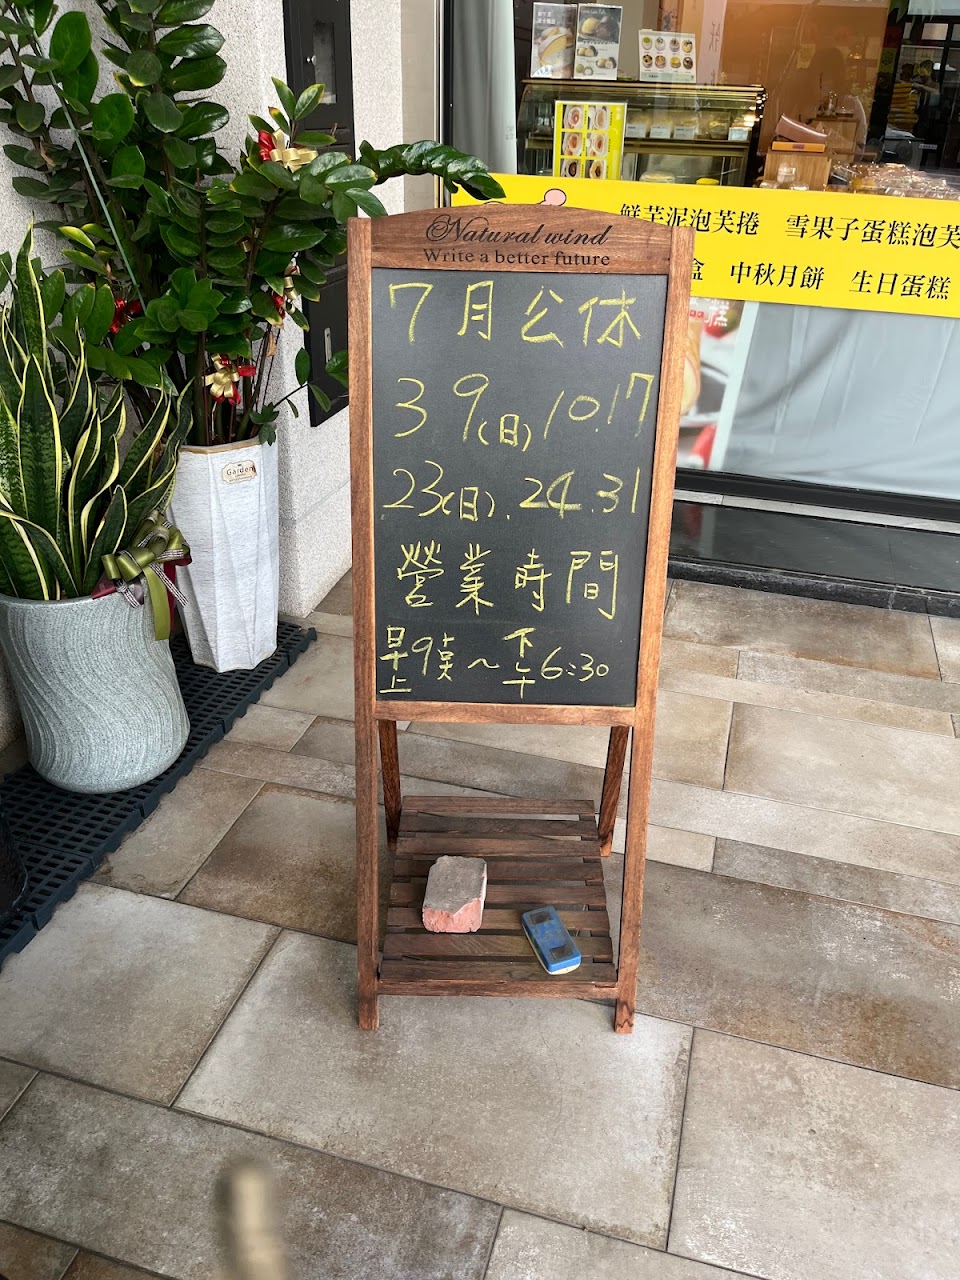 Natural wind
Write a better future
7月公休
3 9(日) 10.17
23(日). 24.31
營業時間
早上9点~下午6:30
鮮芋泥泡芙捲 雪果子蛋糕泡芙
盒 中秋月餅 生日蛋糕
Garden